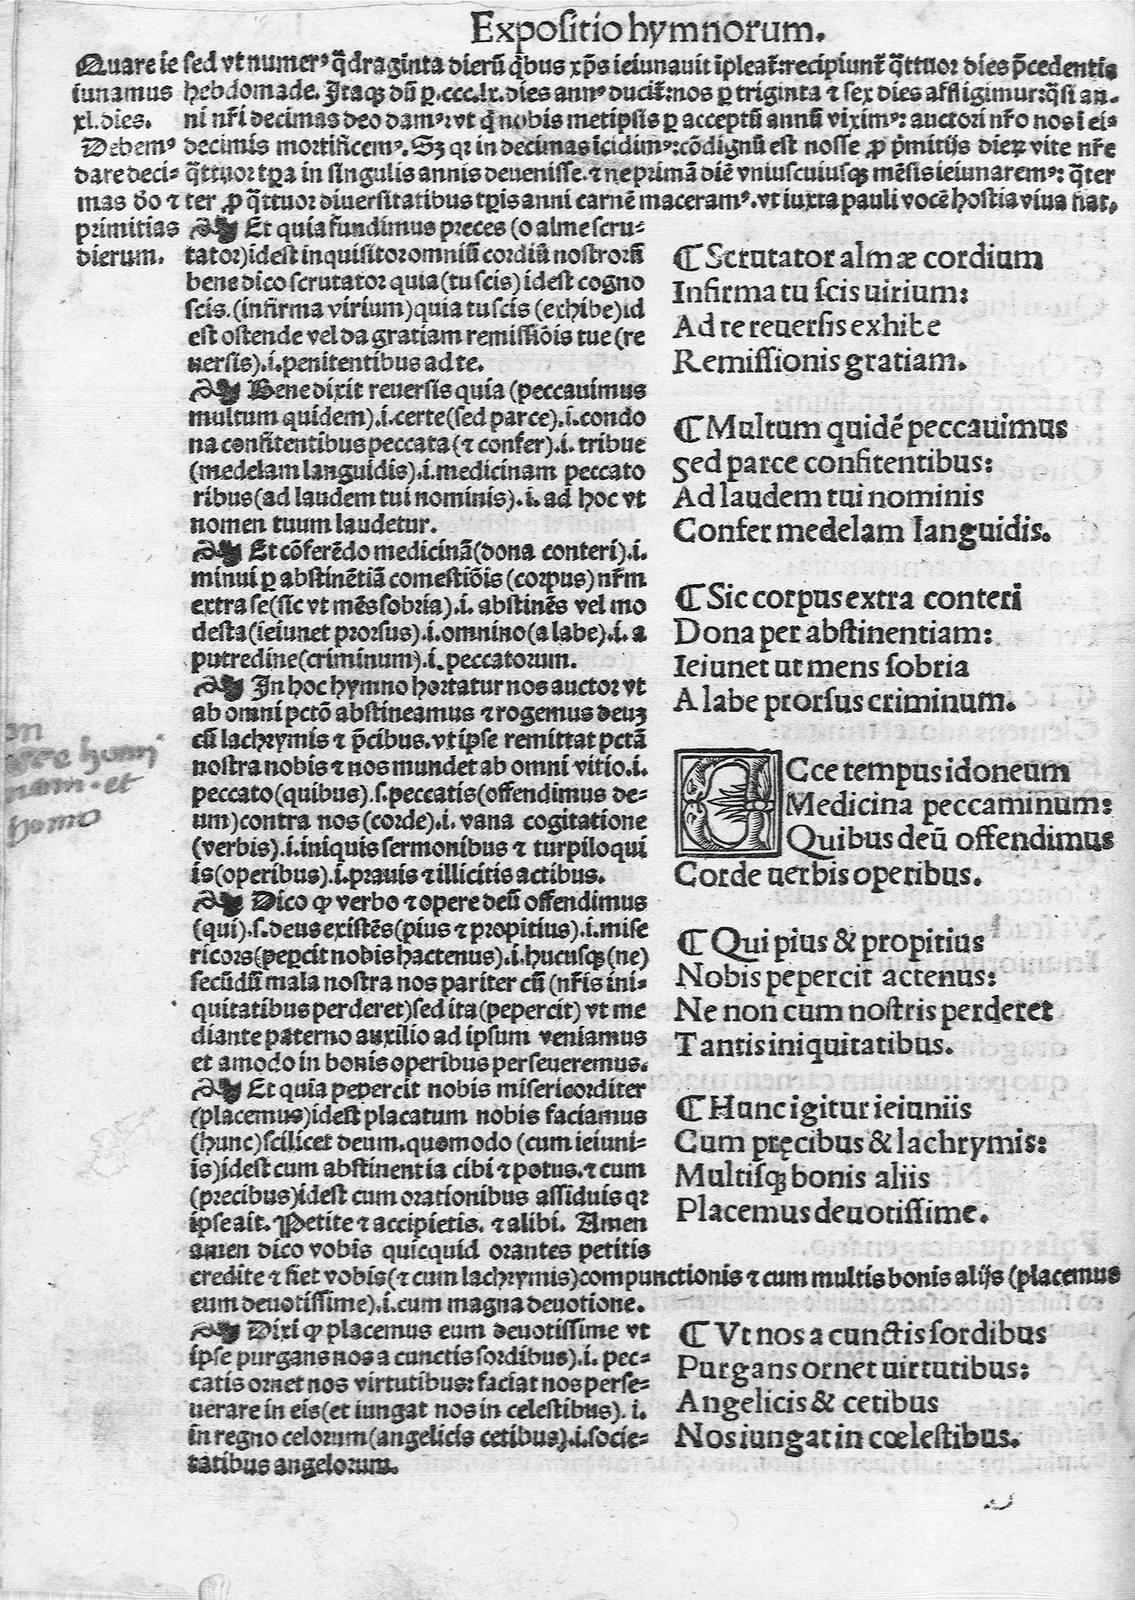 Expositio hymnorum.
Quare ie
iunamus
xl. dies.
Debemꝰ
dare deci-
mas deo ⁊
primitias
dierum.
sed vt numerꝰ q̃draginta dierũ q̃bus xp̃s ieiunauit ĩpleat᷑: recipiunt᷑ q̃ttuor dies p̃cedentis
hebdomade. Itaqꝫ dũ ꝑ .ccc.lx. dies annꝰ ducit᷑: nos ꝑ triginta ⁊ sex dies affligimur: q̃si an-
ni nr̃i decimas deo damꝰ: vt q̃ nobis metipsis ꝑ acceptũ annũ viximꝰ: auctori nr̃o nos ĩ ei-
decimis mortificemꝰ. Sꝫ qꝛ in decimas ĩcidimꝰ: cõdignũ est nosse ꝓ p̃mitijs dieꝝ vite nr̃e
q̃ttuor tꝑa in singulis annis deuenisse. ⁊ ne primã diẽ vniuscuiusqꝫ mẽsis ieiunaremꝰ: q̃ter
ter ꝓ q̃ttuor diuersitatibus tꝑis anni carnẽ maceramꝰ. vt iuxta pauli vocẽ hostia viua fiat.
Et quia fundimus preces (o alme scru-
tator) idest inquisitor omniũ cordiũ nostrorũ
bene dico scrutator quia (tu scis) idest cogno
scis. (infirma virium) quia tu scis (exhibe) id
est ostende vel da gratiam remissiõis tue (re
uersis) .i. penitentibus ad te.
Bene dixit reuersis quia (peccauimus
multum quidem) .i. certe (sed parce) .i. condo
na confitentibus peccata (⁊ confer) .i. tribue
(medelam languidis) .i. medicinam peccato
ribus (ad laudem tui nominis) .i. ad hoc vt
nomen tuum laudetur.
Et cõferẽdo medicinã (dona conteri) .i.
minui ꝑ abstinẽtiã comestiõis (corpus) nr̃m
extra se (sic vt mẽs sobria) .i. abstinẽs vel mo
desta (ieiunet prorsus) .i. omnino (a labe) .i. a
putredine (criminum) .i. peccatorum.
In hoc hymno hortatur nos auctor vt
ab omni pctõ abstineamus ⁊ rogemus deuꝫ
cũ lachrymis ⁊ p̃cibus. vt ipse remittat pctã
nostra nobis ⁊ nos mundet ab omni vitio .i.
peccato (quibus) .s. peccatis (offendimus de-
um) contra nos (corde) .i. vana cogitatione
(verbis) .i. iniquis sermonibus ⁊ turpiloqui
is (operibus) .i. prauis ⁊ illicitis actibus.
Dico ꝙ verbo ⁊ opere deũ offendimus
(qui) .s. deus existẽs (pius ⁊ propitius) .i. mise
ricors (pepcit nobis hactenus) .i. hucusqꝫ (ne)
secũdũ mala nostra nos pariter cũ (nr̃is ini-
quitatibus perderet) sed ita (pepercit) vt me
diante paterno auxilio ad ipsum veniamus
et amodo in bonis operibus perseueremus.
Et quia pepercit nobis misericorditer
(placemus) idest placatum nobis faciamus
(hunc) scilicet deum. quomodo (cum ieiuni-
is) idest cum abstinentia cibi ⁊ potus. ⁊ cum
(precibus) idest cum orationibus assiduis qꝛ
ipse ait. Petite ⁊ accipietis. ⁊ alibi. Amen
amen dico vobis quicquid orantes petitis
credite ⁊ fiet vobis (⁊ cum lachrymis) compunctionis ⁊ cum multis bonis alijs (placemus
eum deuotissime) .i. cum magna deuotione.
Dixi ꝙ placemus eum deuotissime vt
ipse purgans nos a cunctis sordibus) .i. pec-
catis ornet nos virtutibus: faciat nos perse-
uerare in eis (et iungat nos in celestibus) .i.
in regno celorum (angelicis cetibus) .i. socie-
tatibus angelorum.
¶ Scrutator almæ cordium
Infirma tu scis uirium:
Ad te reuersis exhibe
Remissionis gratiam.
¶ Multum quidẽ peccauimus
Sed parce confitentibus:
Ad laudem tui nominis
Confer medelam languidis.
¶ Sic corpus extra conteri
Dona per abstinentiam:
Ieiunet ut mens sobria
A labe prorsus criminum.
ECce tempus idoneum
Medicina peccaminum:
Quibus deũ offendimus
Corde uerbis operibus.
¶ Qui pius & propitius
Nobis pepercit actenus:
Ne non cum nostris perderet
Tantis iniquitatibus.
¶ Hunc igitur ieiuniis
Cum pręcibus & lachrymis:
Multisqꝫ bonis aliis
Placemus deuotissime.
¶ Vt nos a cunctis sordibus
Purgans ornet uirtutibus:
Angelicis & cetibus
Nos iungat in cœlestibus.
homo